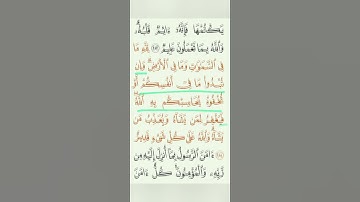 يَكْتُمْهَا فَإِنَّهُۥٓ ءَاثِمٌ قَلْبُهُۥ
وَٱللَّهُ بِمَا تَعْمَلُونَ عَلِيمٌ ٢٨٣ لِّلَّهِ مَا
فِى ٱلسَّمَٰوَٰتِ وَمَا فِى ٱلْأَرْضِ وَإِن
تُبْدُوا۟ مَا فِىٓ أَنفُسِكُمْ أَوْ
تُخْفُوهُ يُحَاسِبْكُم بِهِ ٱللَّهُ
فَيَغْفِرُ لِمَن يَشَآءُ وَيُعَذِّبُ مَن
يَشَآءُ وَٱللَّهُ عَلَىٰ كُلِّ شَىْءٍ قَدِيرٌ
٢٨٤ ءَامَنَ ٱلرَّسُولُ بِمَآ أُنزِلَ إِلَيْهِ مِن
رَّبِّهِۦ وَٱلْمُؤْمِنُونَ كُلٌّ ءَامَنَ